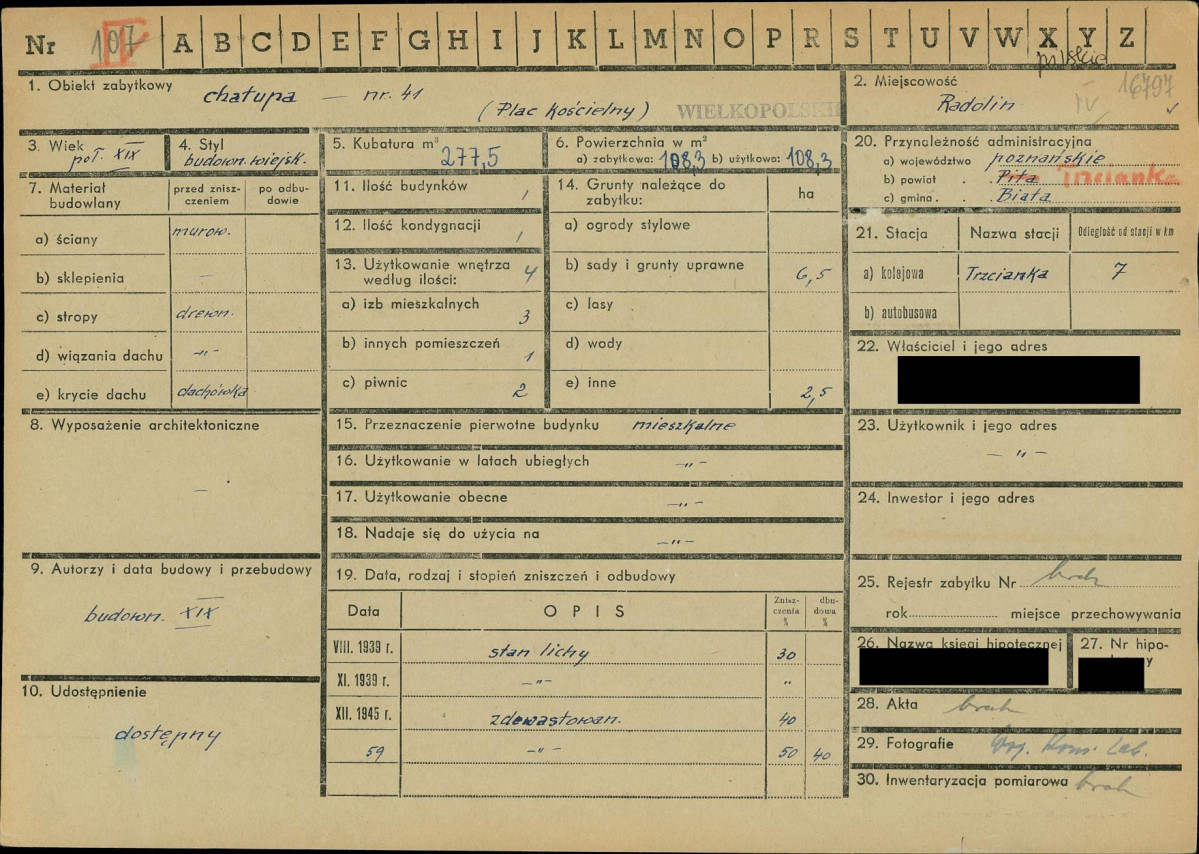 Nr 107 IV A B C D E F G H I J K L M N O P R S T U V W X Y Z
pilskie
1. Obiekt zabytkowy chałupa — nr. 41
(Plac Kościelny) WIELKOPOLSKIE
2. Miejscowość
Radolin IV 16797
3. Wiek
poł. XIX
4. Styl
budown. wiejsk.
5. Kubatura m³
277,5
6. Powierzchnia w m²
a) zabytkowa: 108,3 b) użytkowa: 108,3
20. Przynależność administracyjna
a) województwo poznańskie
b) powiat . . Piła Trzcianka
c) gmina . . Biała
7. Materiał budowlany
przed zniszczeniem
po odbudowie
a) ściany murow.
b) sklepienia —
c) stropy drewn.
d) wiązania dachu -"-
e) krycie dachu dachówka
11. Ilość budynków 1
12. Ilość kondygnacji 1
13. Użytkowanie wnętrza 4
według ilości:
a) izb mieszkalnych 3
b) innych pomieszczeń 1
c) piwnic 2
14. Grunty należące do
zabytku: ha
a) ogrody stylowe
b) sady i grunty uprawne 6,5
c) lasy
d) wody
e) inne 2,5
21. Stacja Nazwa stacji Odległość od stacji w km
a) kolejowa Trzcianka 7
b) autobusowa
22. Właściciel i jego adres
8. Wyposażenie architektoniczne
—
15. Przeznaczenie pierwotne budynku mieszkalne
16. Użytkowanie w latach ubiegłych -"-
17. Użytkowanie obecne -"-
18. Nadaje się do użycia na -"-
23. Użytkownik i jego adres
- " -
24. Inwestor i jego adres
9. Autorzy i data budowy i przebudowy
budown. XIX
10. Udostępnienie
dostępny
19. Data, rodzaj i stopień zniszczeń i odbudowy
Data OPIS Zniszczenia % dbudowa %
VIII. 1939 r. stan lichy 30
XI. 1939 r. -"- "
XII. 1945 r. zdewastowan. 40
59 -"- 50 40
25. Rejestr zabytku Nr brak
rok miejsce przechowywania
26. Nazwa księgi hipotecznej
27. Nr hipo-
y
28. Akta brak
29. Fotografie Woj. Kons. Zab.
30. Inwentaryzacja pomiarowa brak